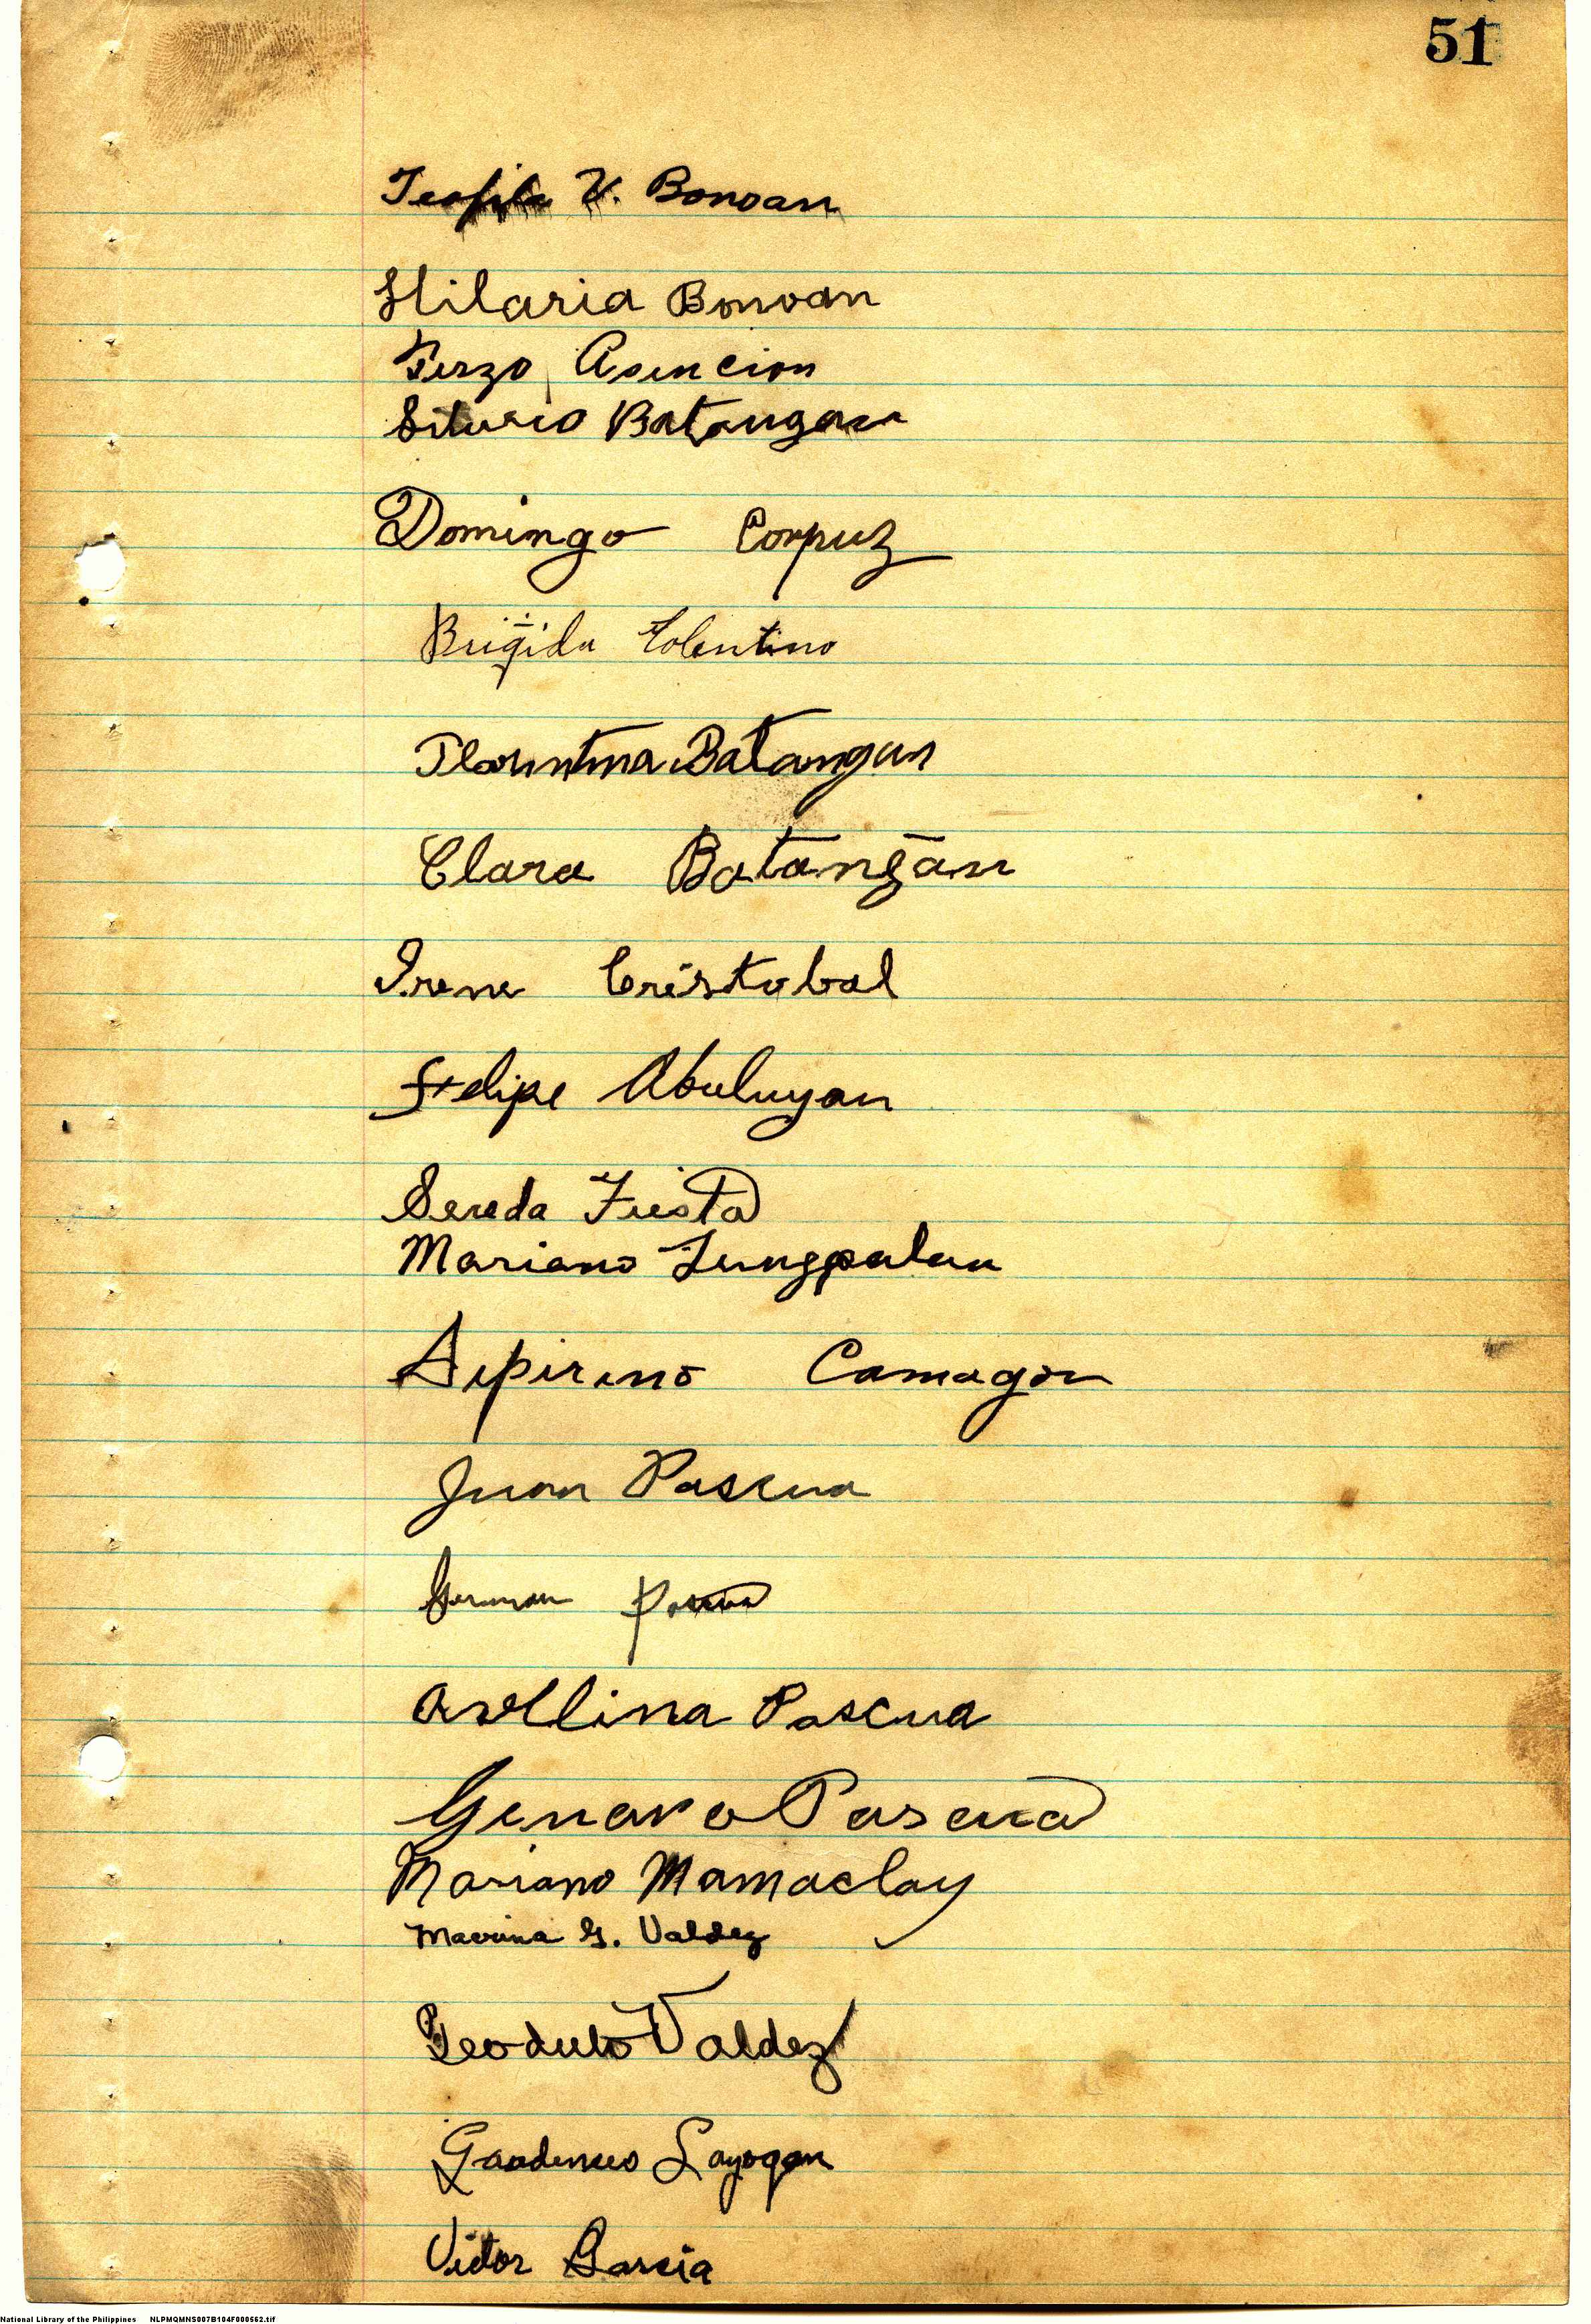 51
Teofila V. Bonoan
Hilaria Bonoan
Terzo Asencion
Silverio Batangan
Domingo Corpuz
Brigida Tolentino
Florintina Batangan
Clara Batangan
Irene Cristobal
Felipe Abuluyan
Sereda Fiesta
Mariano Lungpalan
Sipirino Camagon
Juan Pascua
German Pascua
Avellina Pascua
Genaro Pascua
Mariano Mamaclay
Macrina G. Valdez
Teodulo Valdez
Gaudencio Layogan
Victor Garcia
National Library of the Philippines NLPMQMNS007B104F000562.tif